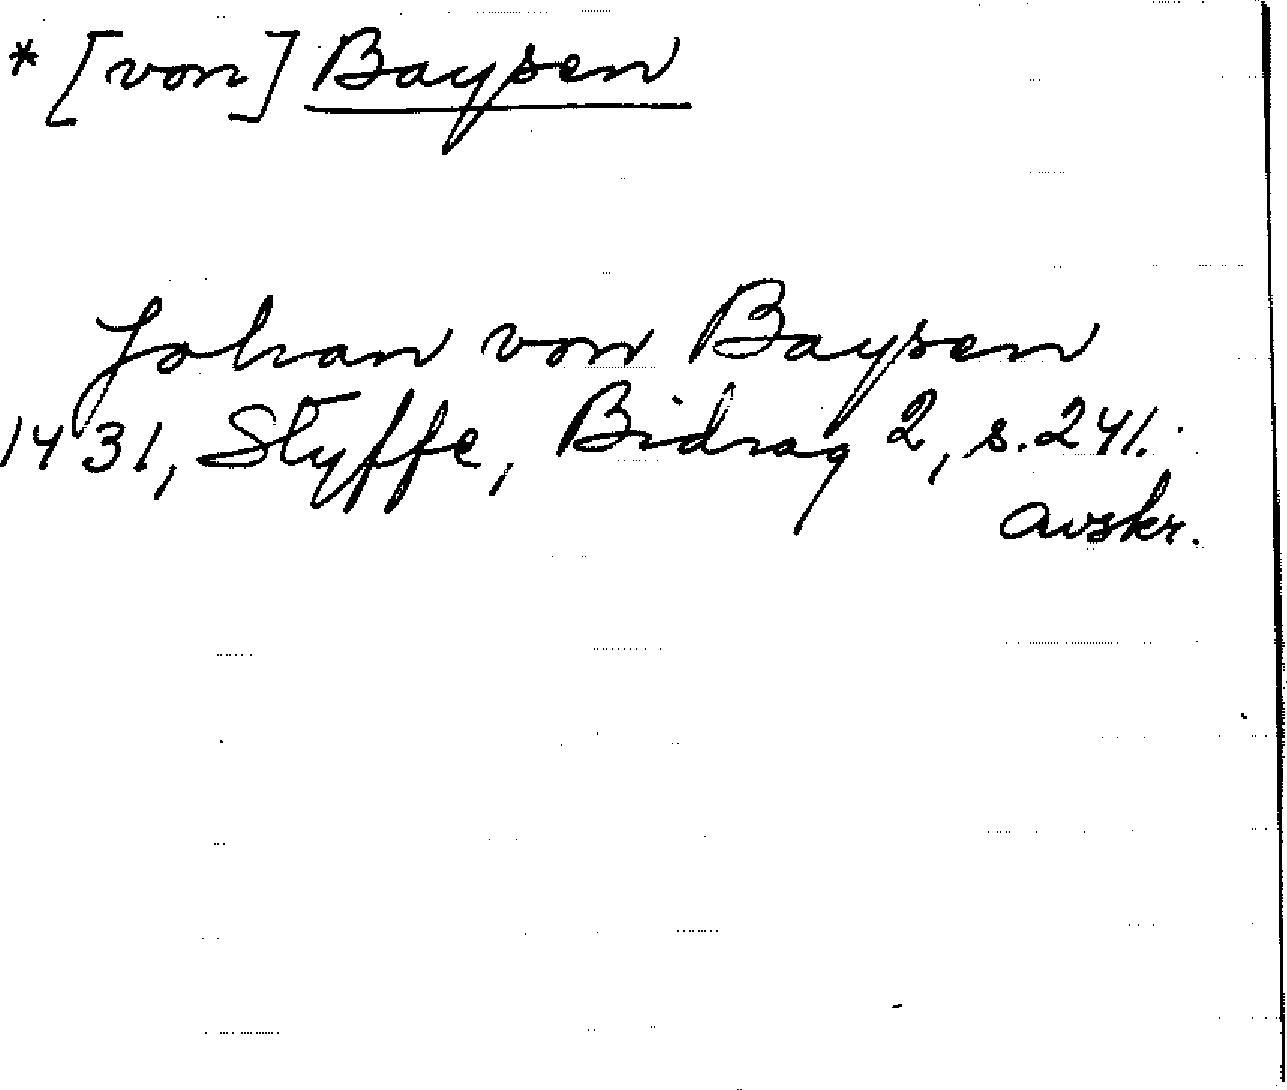 * [von] Baysen
Johan von Baysen
1431, Styffe, Bidrag 2, s. 241.
avskr.